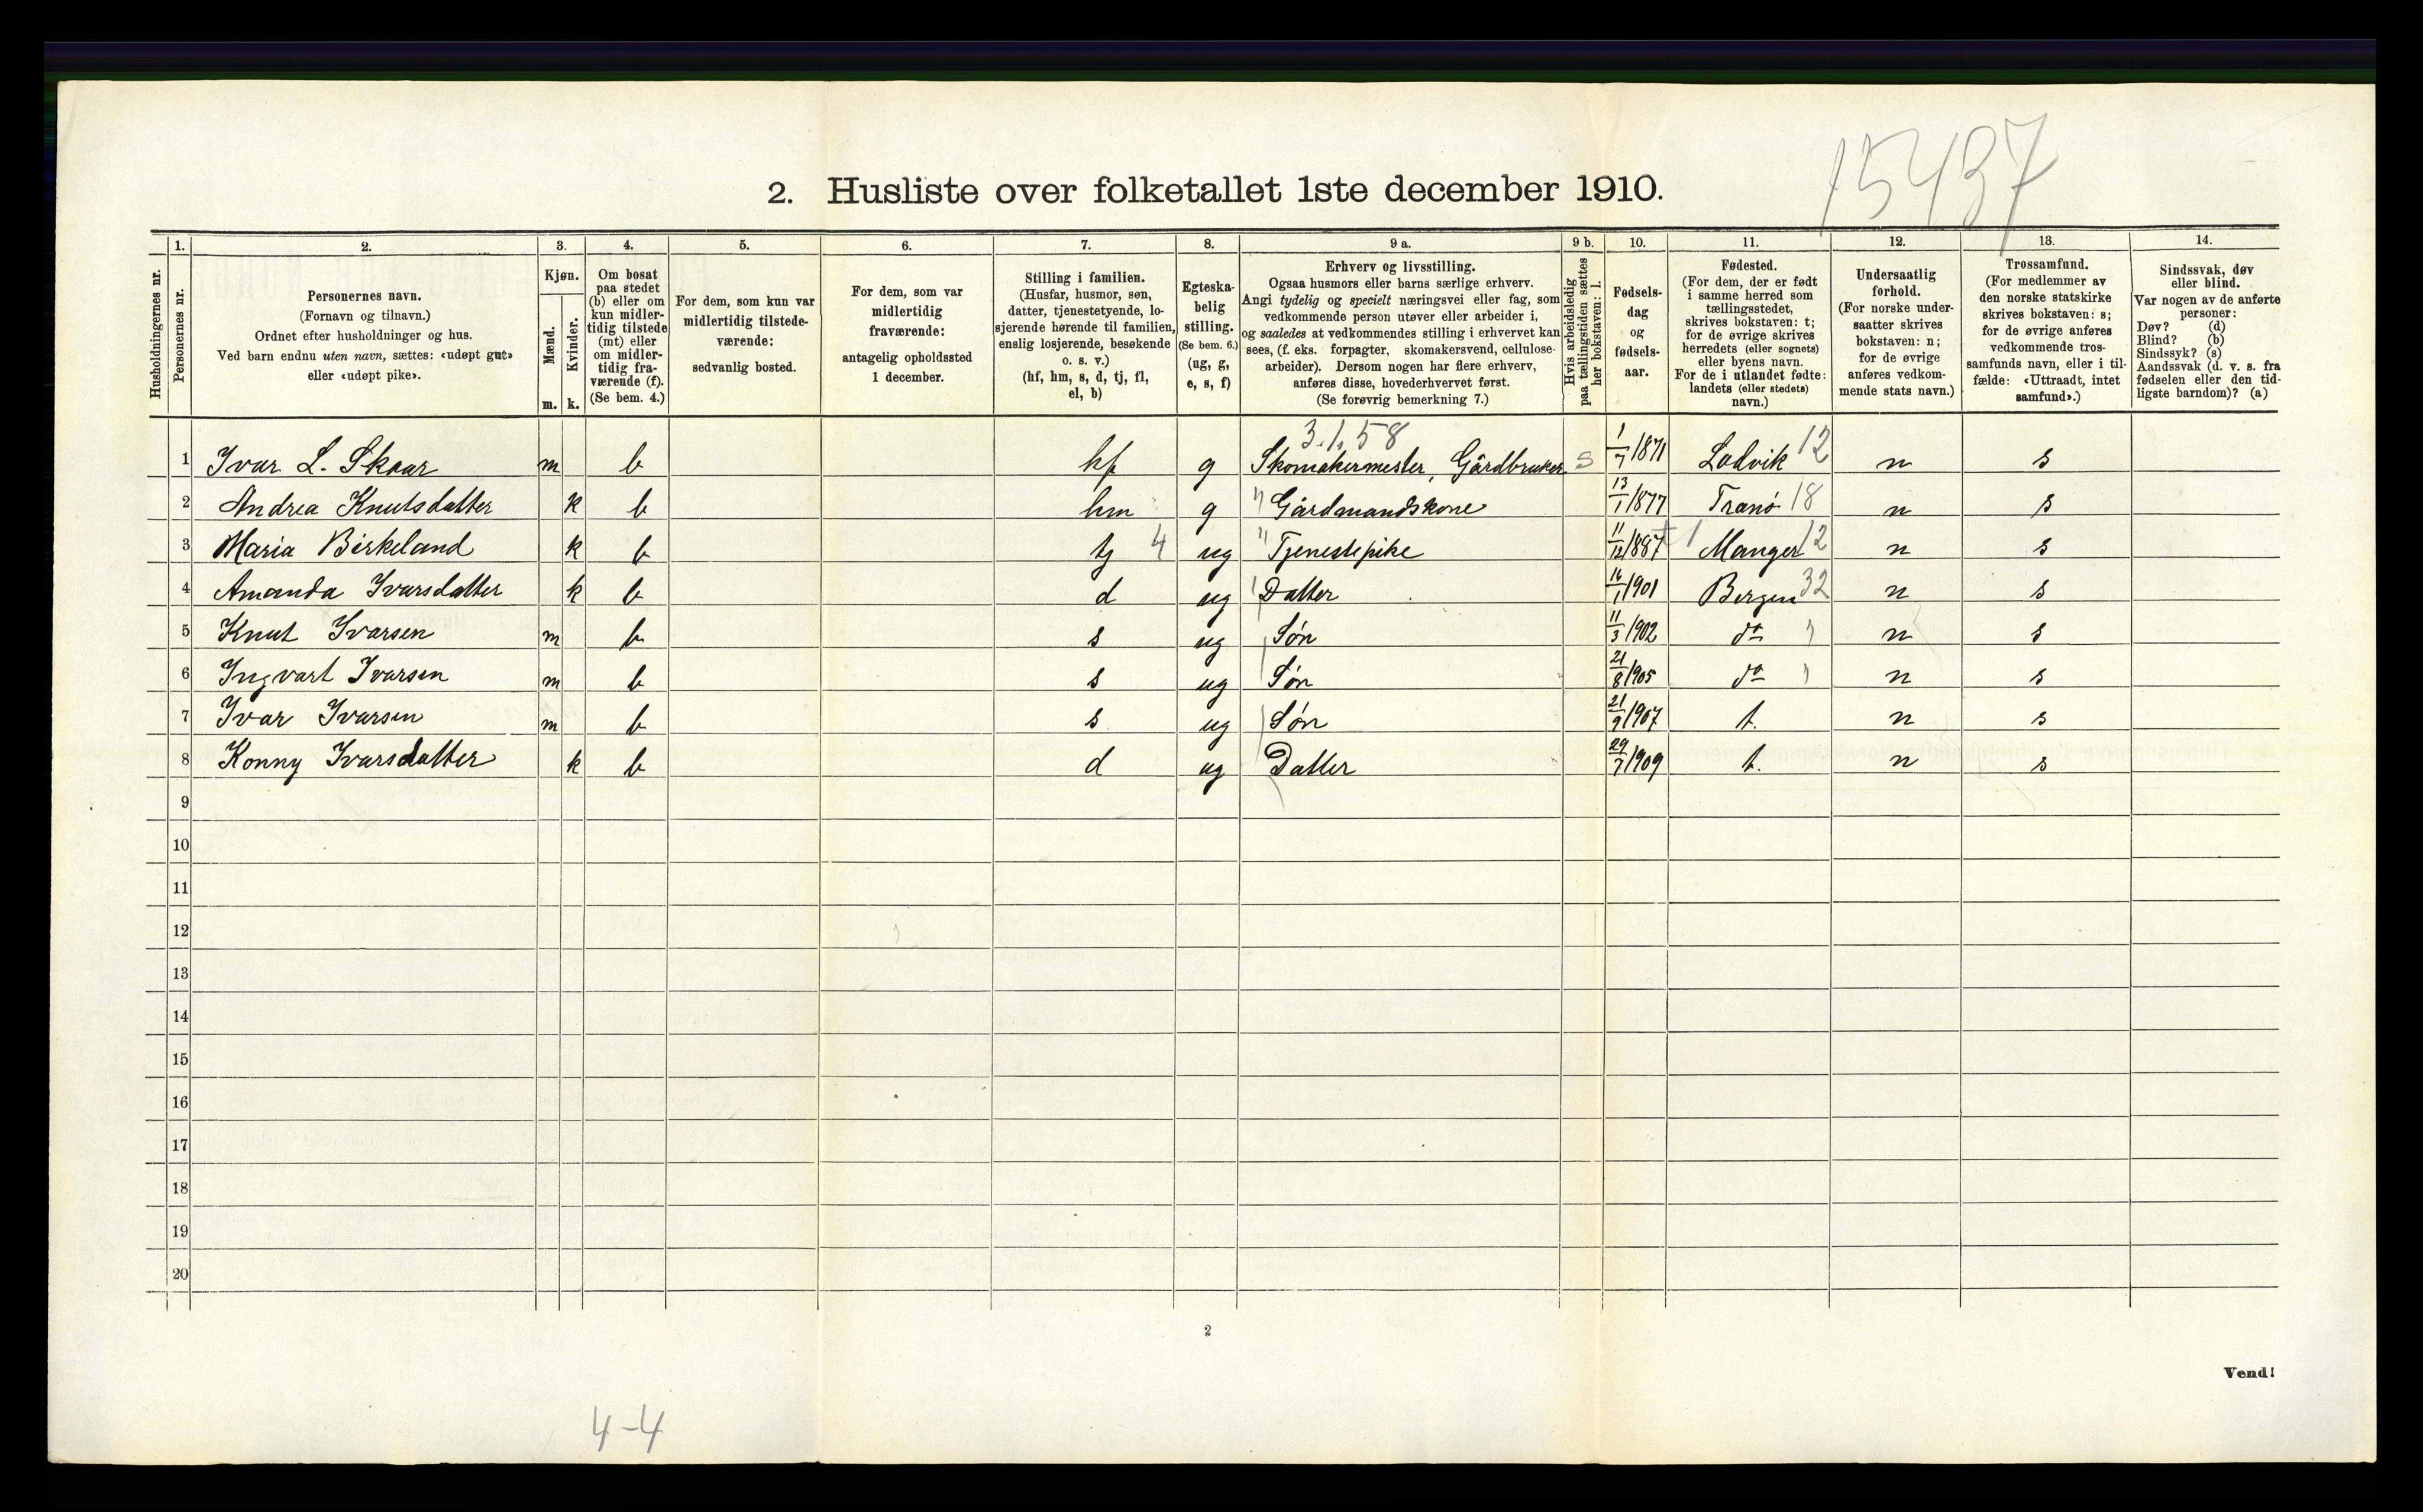 15437
2. Husliste over folketallet 1ste december 1910.
Husholdningernes nr.
1.
Personernes nr.
2.
Personernes navn.
(Fornavn og tilnavn.)
Ordnet efter husholdninger og hus.
Ved barn endnu uten navn, sættes: «udøpt gut»
eller «udøpt pike».
3.
Kjøn.
Mænd.
Kvinder.
m. k.
4.
Om bosat
paa stedet
(b) eller om
kun midler-
tidig tilstede
(mt) eller
om midler-
tidig fra-
værende (f).
(Se bem. 4.)
5.
For dem, som kun var
midlertidig tilstede-
værende:
sedvanlig bosted.
6.
For dem, som var
midlertidig
fraværende:
antagelig opholdssted
1 december.
7.
Stilling i familien.
(Husfar, husmor, søn,
datter, tjenestetyende, lo-
sjerende hørende til familien,
enslig losjerende, besøkende
o. s. v.)
(hf, hm, s, d, tj, fl,
el, b)
8.
Egteska-
belig
stilling.
(Se bem. 6.)
(ug, g,
e, s, f)
9 a.
Erhverv og livsstilling.
Ogsaa husmors eller barns særlige erhverv.
Angi tydelig og specielt næringsvei eller fag, som
vedkommende person utøver eller arbeider i,
og saaledes at vedkommendes stilling i erhvervet kan
sees, (f. eks. forpagter, skomakersvend, cellulose-
arbeider). Dersom nogen har flere erhverv,
anføres disse, hovederhvervet først.
(Se forøvrig bemerkning 7.)
9 b.
Hvis arbeidsledig
paa tællingstiden sættes
her bokstaven: l.
10.
Fødsels-
dag
og
fødsels-
aar.
11.
Fødested.
(For dem, der er født
i samme herred som
tællingsstedet,
skrives bokstaven: t;
for de øvrige skrives
herredets (eller sognets)
eller byens navn.
For de i utlandet fødte:
landets (eller stedets)
navn.)
12.
Undersaatlig
forhold.
(For norske under-
saatter skrives
bokstaven: n;
for de øvrige
anføres vedkom-
mende stats navn.)
13.
Trossamfund.
(For medlemmer av
den norske statskirke
skrives bokstaven: s;
for de øvrige anføres
vedkommende tros-
samfunds navn, eller i til-
fælde: «Uttraadt, intet
samfund».)
14.
Sindssvak, døv
eller blind.
Var nogen av de anførte
personer:
Døv? (d)
Blind? (b)
Sindssyk? (s)
Aandssvak (d. v. s. fra
fødselen eller den tid-
ligste barndom)? (a)
3.1.58
1 Ivar L. Skaar m b hf g Skomakermester, Gårdbruker s 1/7 1871 Ladvik 12 n s
2 Andrea Knutsdatter k b hm g " Gårdmandskone 13/1 1877 Tranö 18 n s
3 Maria Birkeland k b tj 4 ug " Tjenestepike 11/12 1887 t 1 Manger 12 n s
4 Amanda Ivarsdatter k b d ug Datter 16/1 1901 Bergen 32 n s
5 Knut Ivarsen m b s ug Søn 11/3 1902 do n s
6 Ingvart Ivarsen m b s ug Søn 21/8 1905 do n s
7 Ivar Ivarsen m b s ug Søn 21/9 1907 t. n s
8 Konny Ivarsdatter k b d ug Datter 29/7 1909 t. n s
9
10
11
12
13
14
15
16
17
18
19
20
2
Vend!
4-4